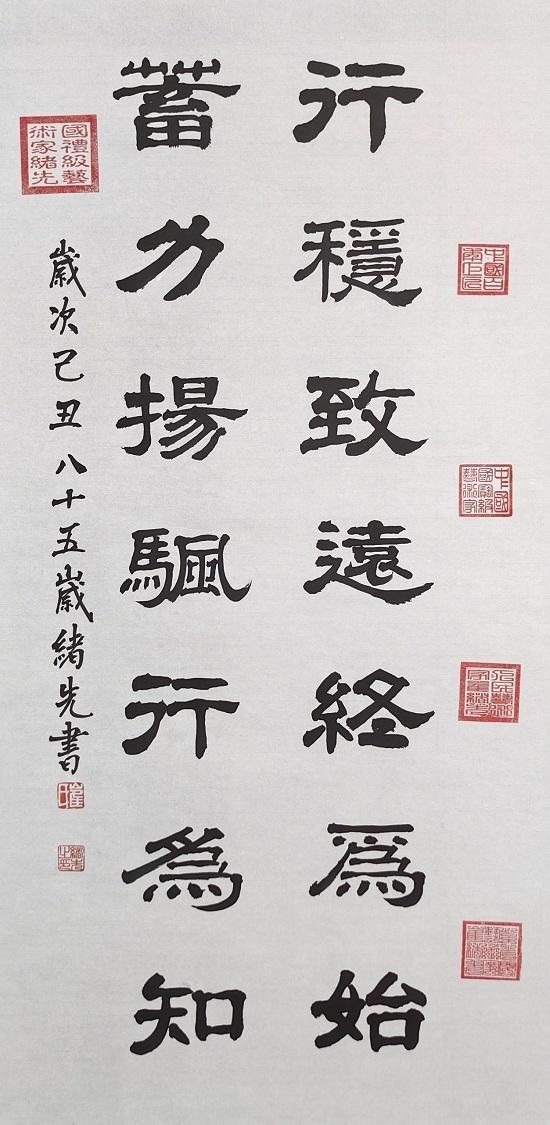 行穩致遠終爲始
蓄力揚颿行為知
國禮級藝術家緒先
歲次己丑八十五歲緒先書